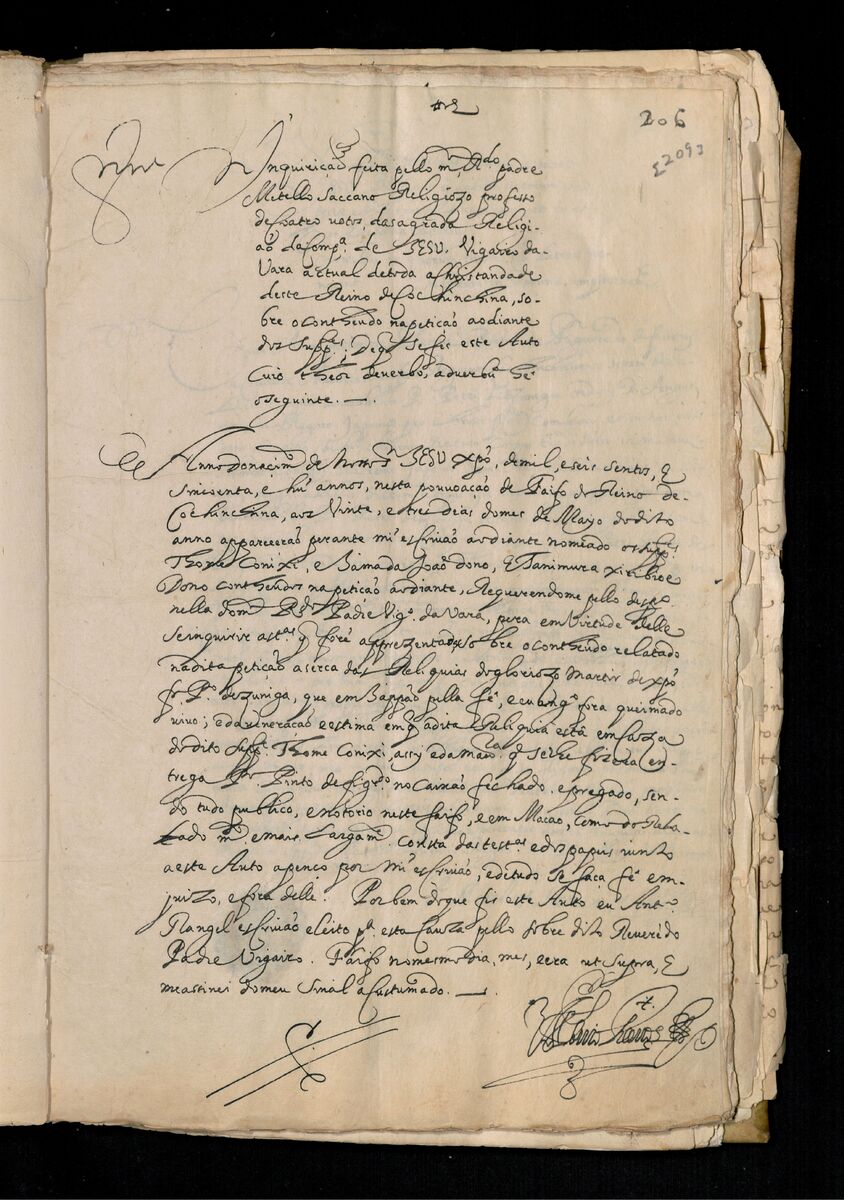 206
Σ2093
Inquirição feita pello m.to R.do padre
Metello Saccano Religiozo professo
de coatro votos, da sagrada Religi-
aõ da Comp.a de JESU. Vigairo da-
Vara actual de toda a Christandade
deste Reino de Cochinchina, so-
bre o contheudo na petição ao diante
dos Supp.tes; de q̃ se fis este Auto
cuio theor de verbo, ad verbũ he
o seguinte. —
Anno do nacim.to de Nosso S.r JESU Xpõ, de mil, e seis sentos, E
sincoenta, e hũ annos, nesta pouvoação de Faifo do Reino de-
Cochinchina, aos Vinte, e tres dias do mes de Mayo do dito
anno apparecerão perante mĩ escrivão ao diante nomeado os supp.tes
Thome Conixi, e Bamada João dono, E Tanimura xiribioe
Dono contheudos na petição ao diante, Requerendome pello desp.o
nella do m.to R.do Padre Vig.ro da Vara, pera em Virtude delle
se inquirir as t.as q̃ forẽ apprezentados sobre o contheudo relatado
na dita petição aserca das Reliquias do gloriozo Martir de xpõ
fr. P.o de zuniga, que em Jappão pella fé, e euang.o fora queimado
vivo; e da vineração e estima em q̃ a dita Reliquia está em caza
do dito supp.te Thome Conixi, assy e da man.ra q̃ se lhe fizera en-
trega P.o Pinto de fig.do no Caixão fechado. e pregado, sen-
do tudo publico, e notorio neste faifó, e em Macao, como do Rela-
tado m.to e mais Largam.te consta das test.as e dos papeis iunto
a este Auto apenço por mĩ escrivão, e de tudo se faça fé em-
juizo, e fora delle. Por bem do que fis este Auto eu Ant.o
Rangel escrivão eleito p.a esta Cauza pello sobre dito Reverẽdo
Padre Vigairo. Faifo no mesmo dia, mes, e era ut supra, E
me assinei do meu sinal acustumado. —